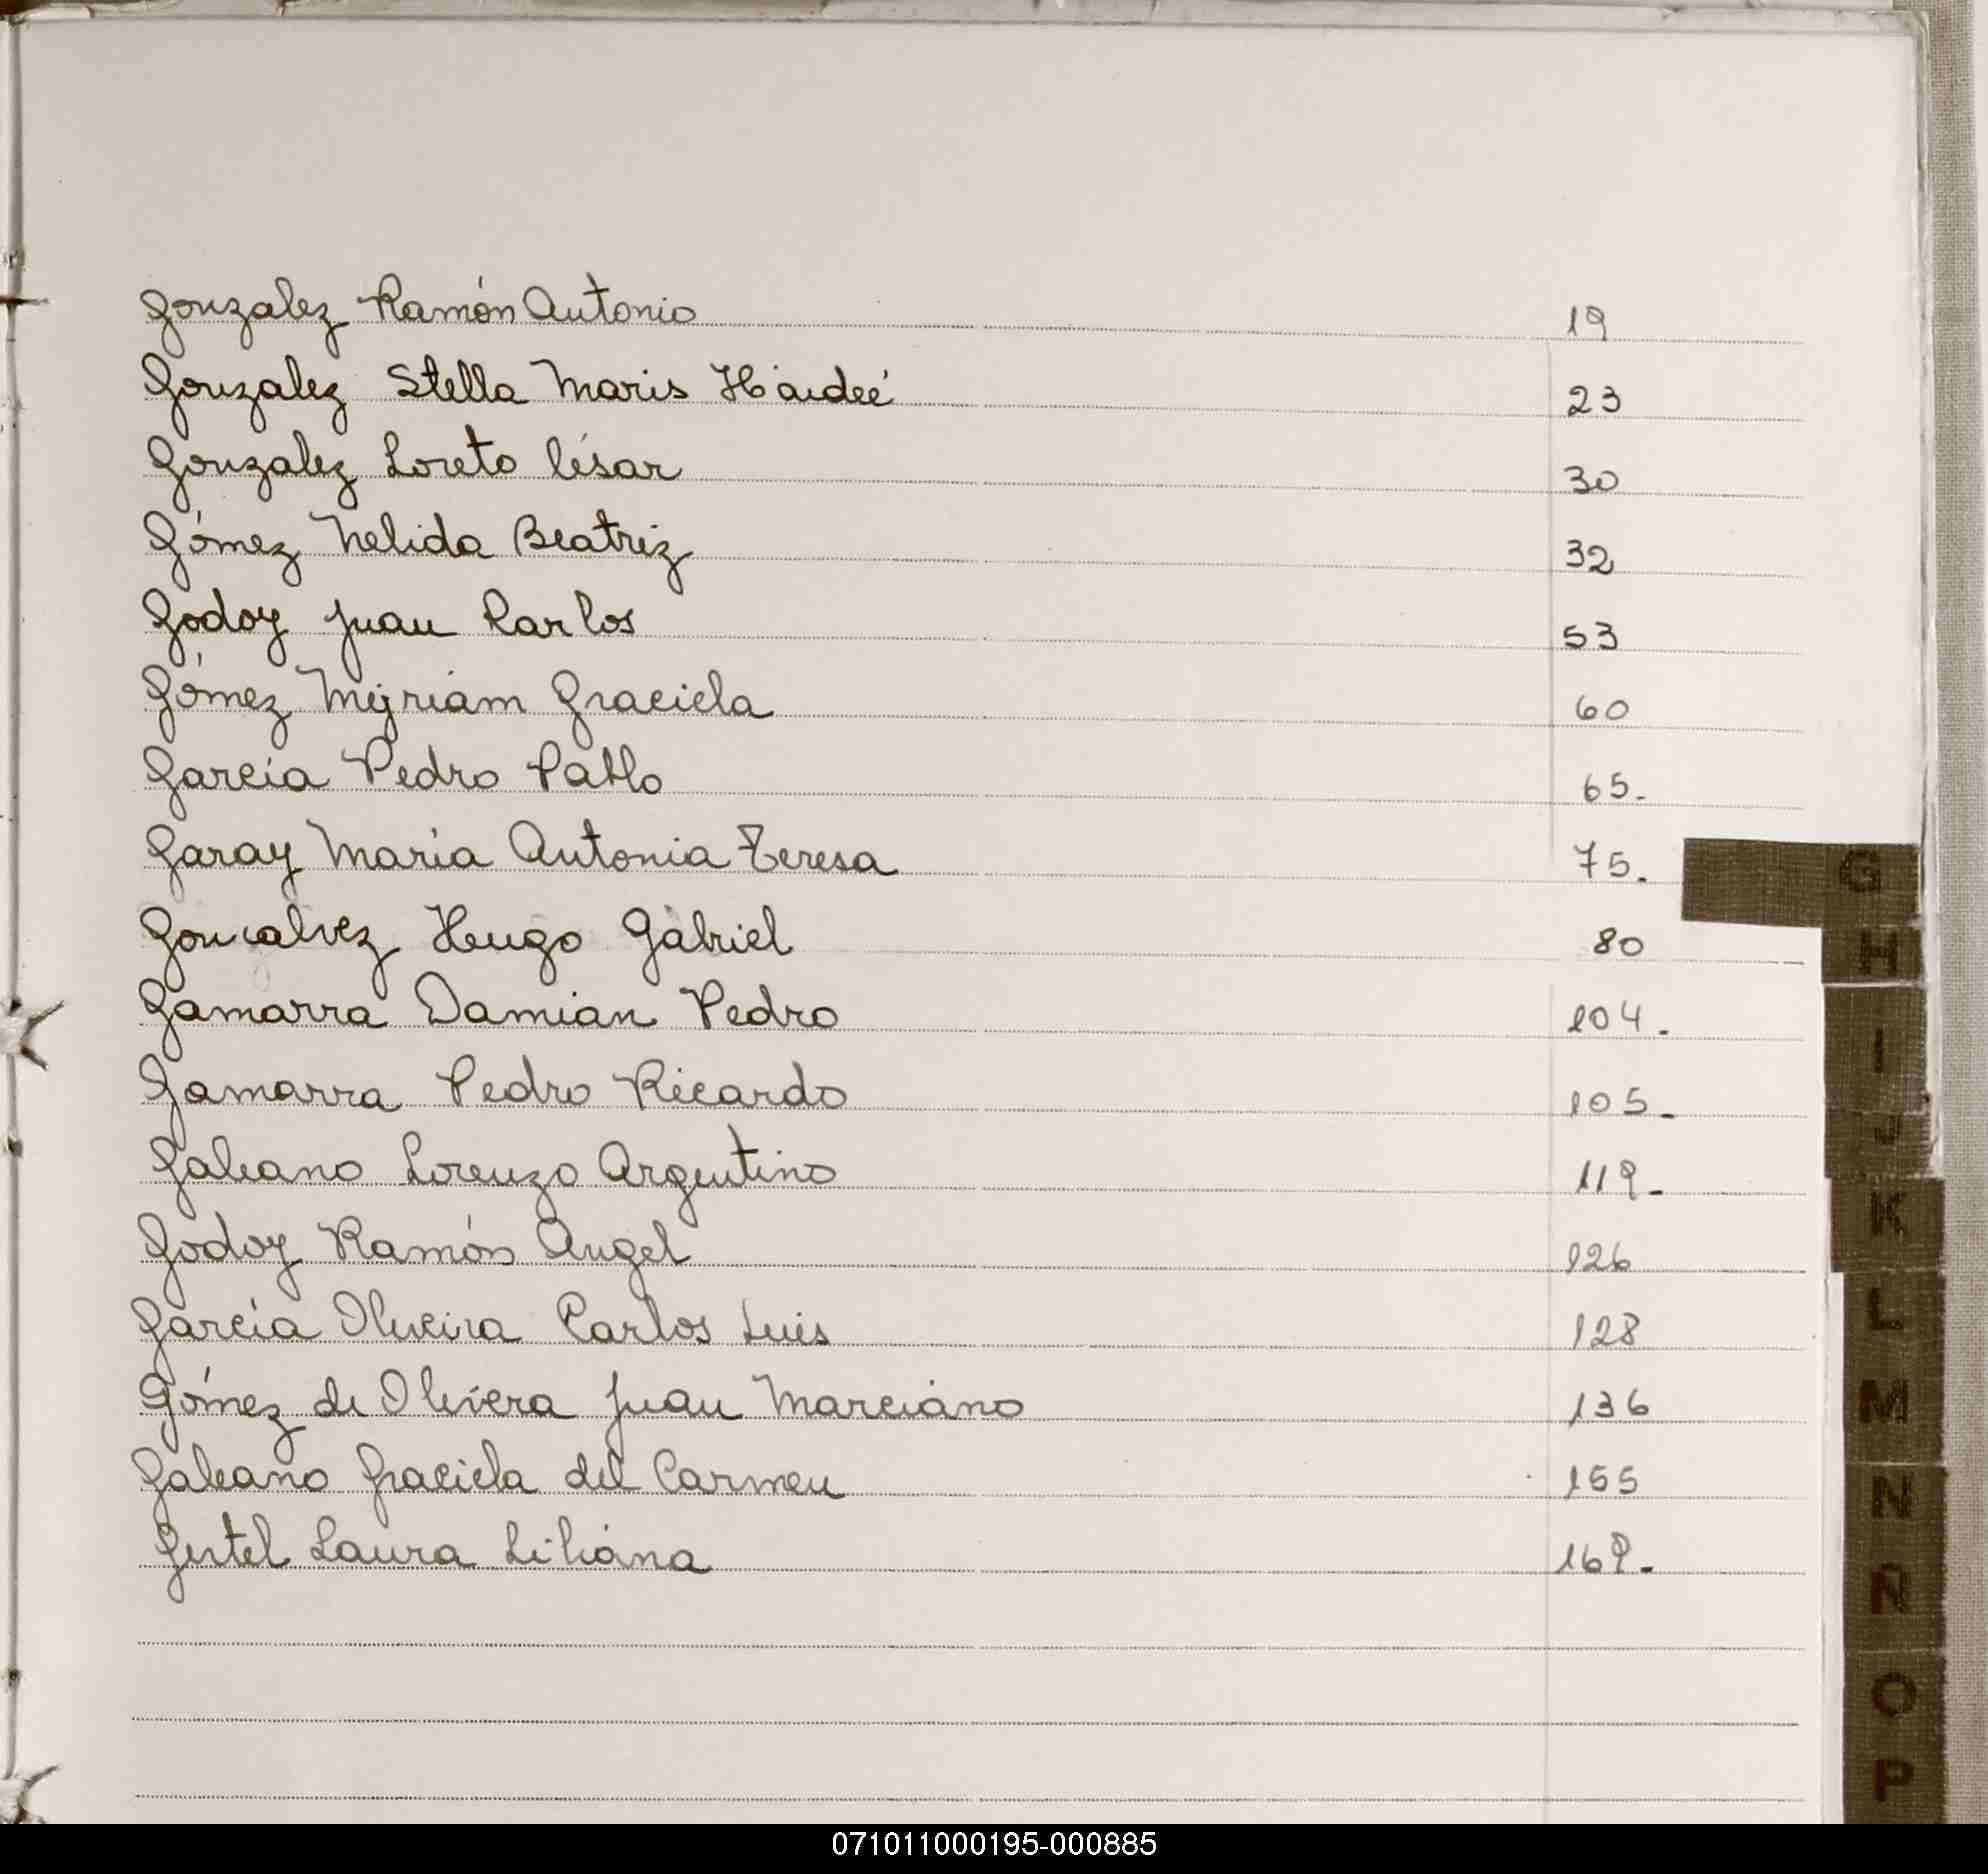 Gonzalez Ramón Antonio 19
Gonzalez Stella Maris Haideé 23
Gonzalez Loreto César 30
Gómez Nelida Beatriz 32
Godoy Juan Carlos 53
Gómez Myriam Graciela 60
Garcia Pedro Pablo 65.
Garay Maria Antonia Teresa 75.
Goncalvez Hugo Gabriel 80
Gamarra Damian Pedro 104.
Gamarra Pedro Ricardo 105.
Galeano Lorenzo Argentino 119.
Godoy Ramón Angel 126
Garcia Oliveira Carlos Luis 128
Gómez de Olivera Juan Marciano 136
Galeano Graciela del Carmen 155
Gertel Laura Liliana 169.
G
H
I
J
K
L
M
N
Ñ
O
P
071011000195-000885